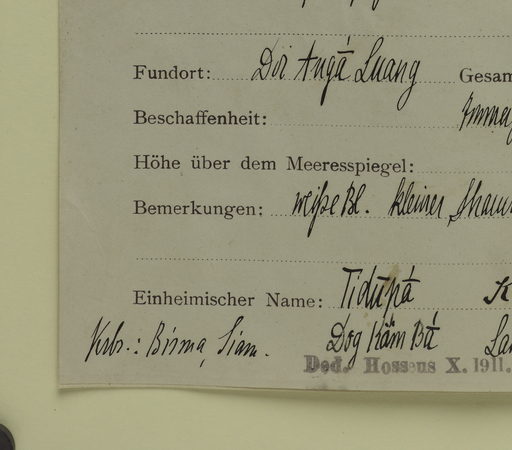 Fundort: Doi Angā Luang Gesam
Beschaffenheit:
Höhe über dem Meeresspiegel:
Bemerkungen: weiße Bl. kleiner
Einheimischer Name: Tidupá K
Vrbr.: Birma, Siam. Dog Käm Bá Lan
Ded. Hosseus X. 1911.